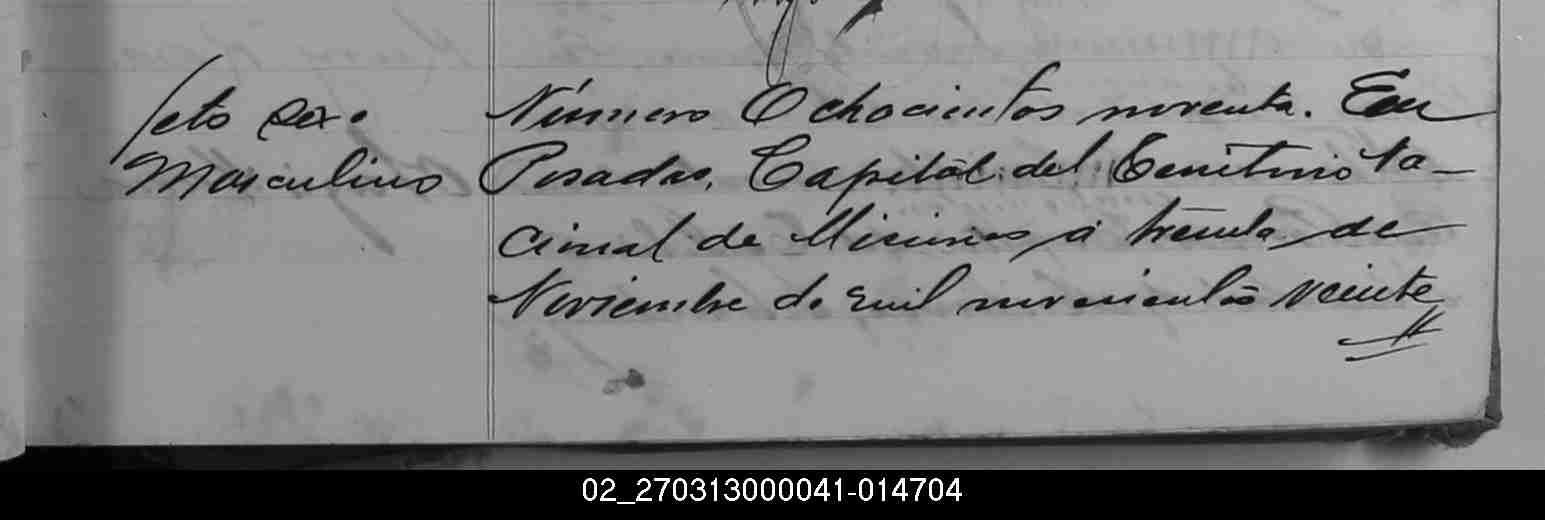 feto sexo
Masculino
Número Ochocientos noventa. En
Posadas, Capital del Territorio Na-
cional de Misiones á treinta de
Noviembre de mil novecientos veinte
02_270313000041-014704